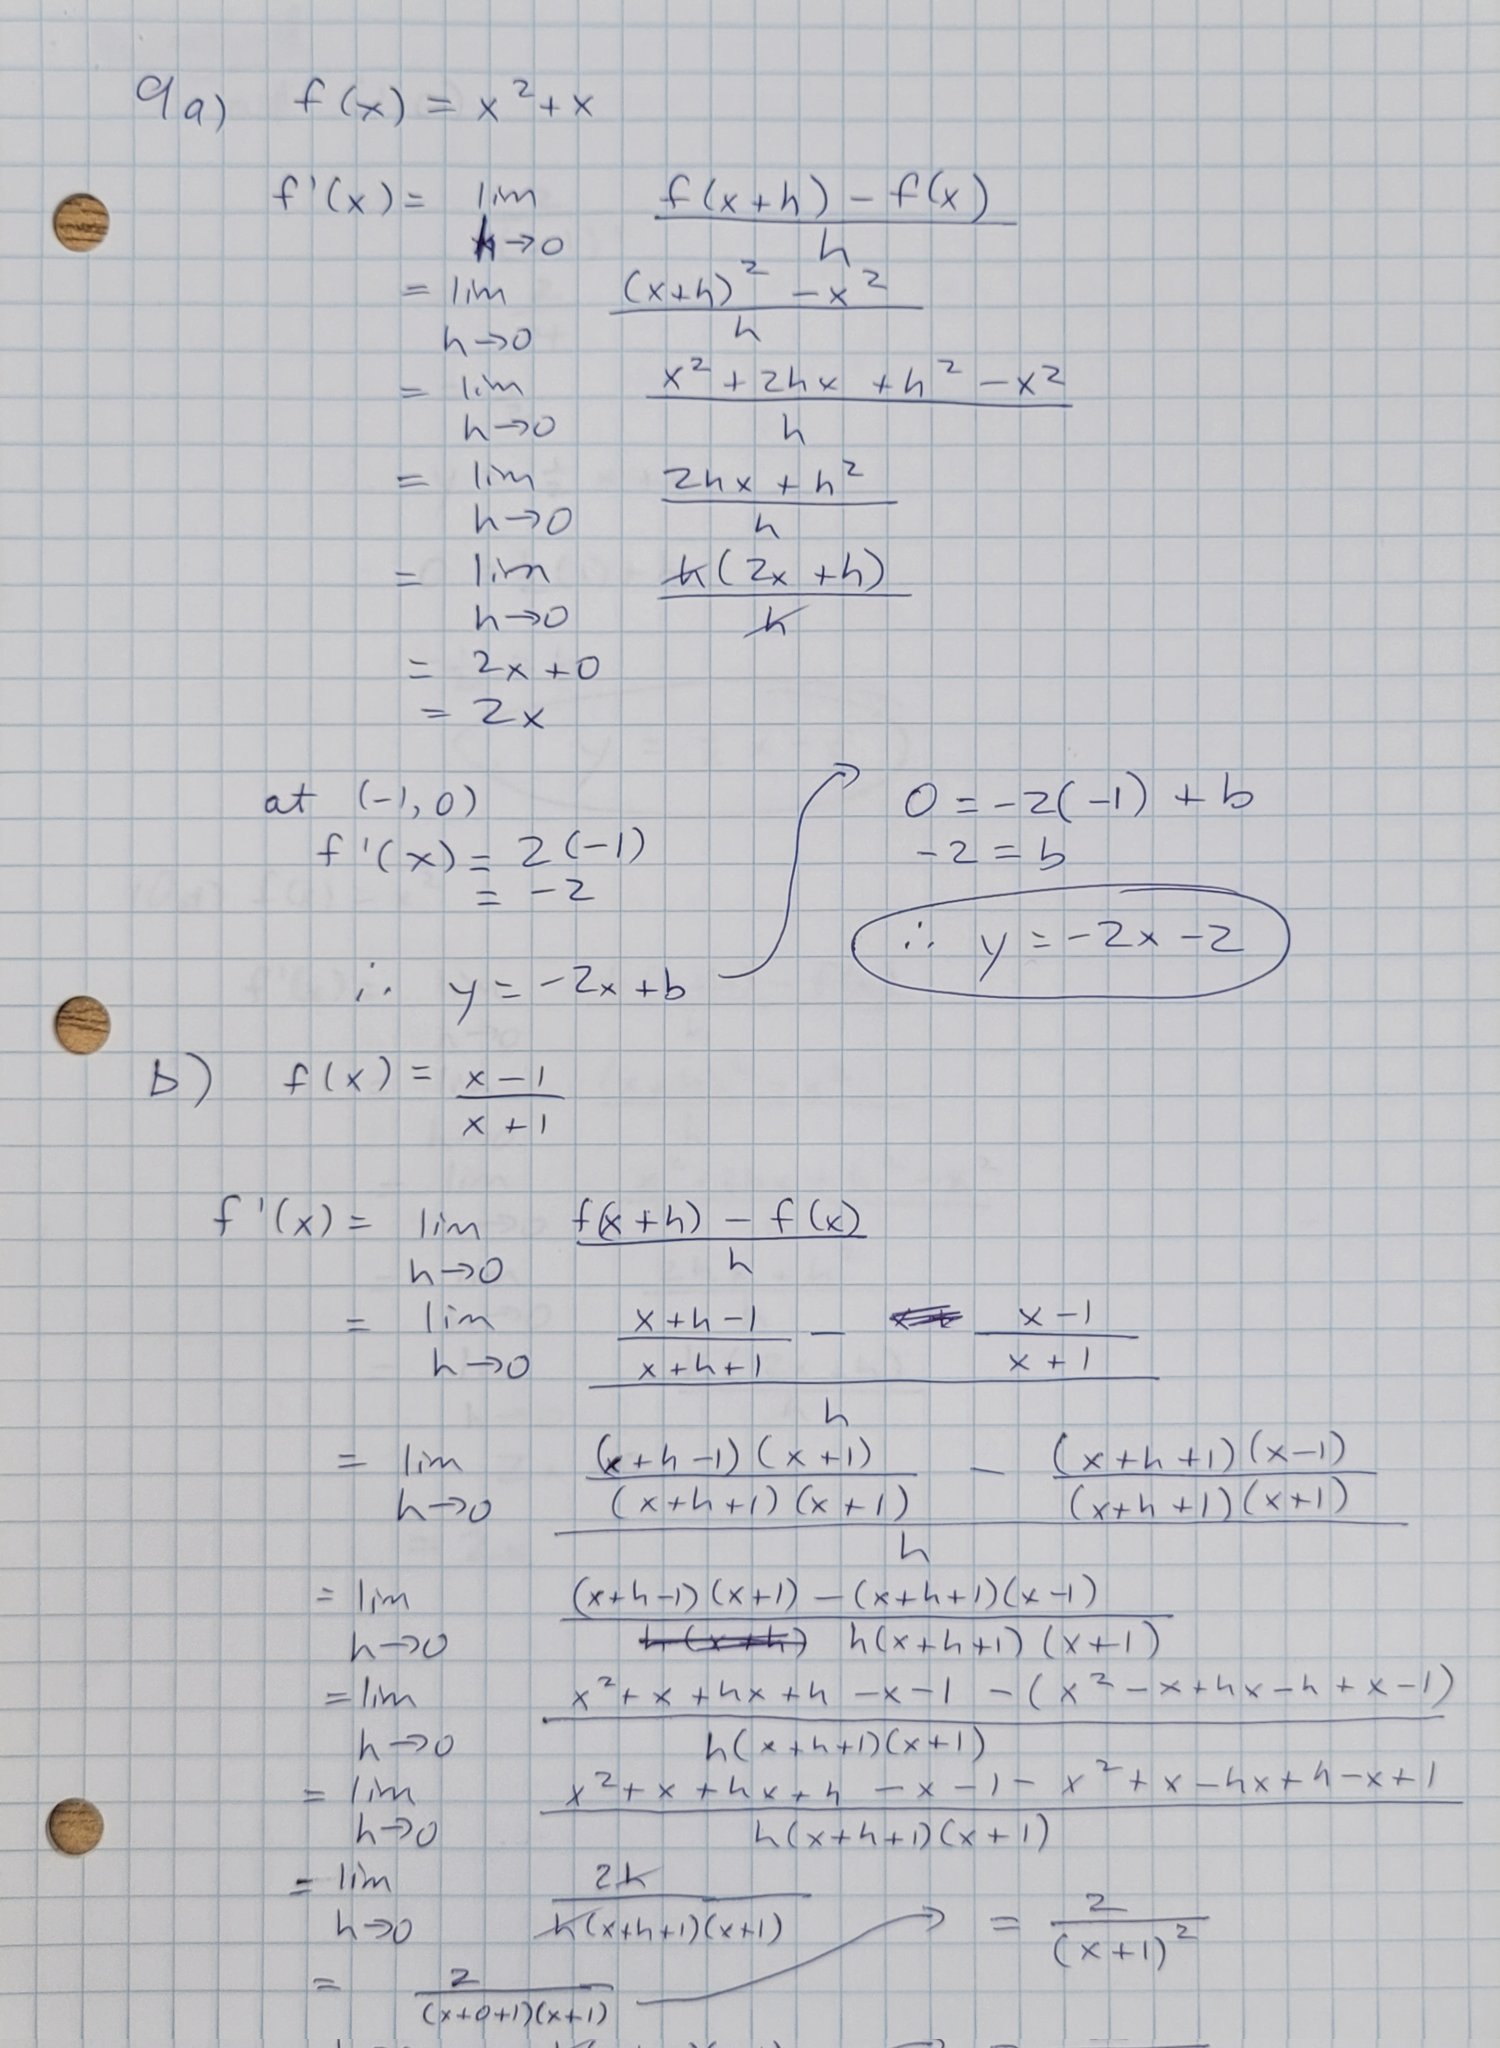 9a) f(x) = x² + x
f'(x) = lim h→0 (f(x+h) - f(x))/h
= lim h→0 ((x+h)² - x²)/h
= lim h→0 (x² + 2hx + h² - x²)/h
= lim h→0 (2hx + h²)/h
= lim h→0 h(2x + h)/h
= 2x + 0
= 2x
at (-1, 0)
f'(x) = 2(-1)
= -2
∴ y = -2x + b
0 = -2(-1) + b
-2 = b
∴ y = -2x - 2
b) f(x) = (x - 1)/(x + 1)
f'(x) = lim h→0 (f(x+h) - f(x))/h
= lim h→0 ((x+h-1)/(x+h+1) - (x-1)/(x+1))/h
= lim h→0 ((x+h-1)(x+1)/(x+h+1)(x+1) - (x+h+1)(x-1)/(x+h+1)(x+1))/h
= lim h→0 ((x+h-1)(x+1) - (x+h+1)(x-1))/h(x+h+1)(x+1)
= lim h→0 (x² + x + hx + h - x - 1 - (x² - x + hx - h + x - 1))/h(x+h+1)(x+1)
= lim h→0 (x² + x + hx + h - x - 1 - x² + x - hx + h - x + 1)/h(x+h+1)(x+1)
= lim h→0 2h/h(x+h+1)(x+1)
= 2/(x+0+1)(x+1)
= 2/(x+1)²